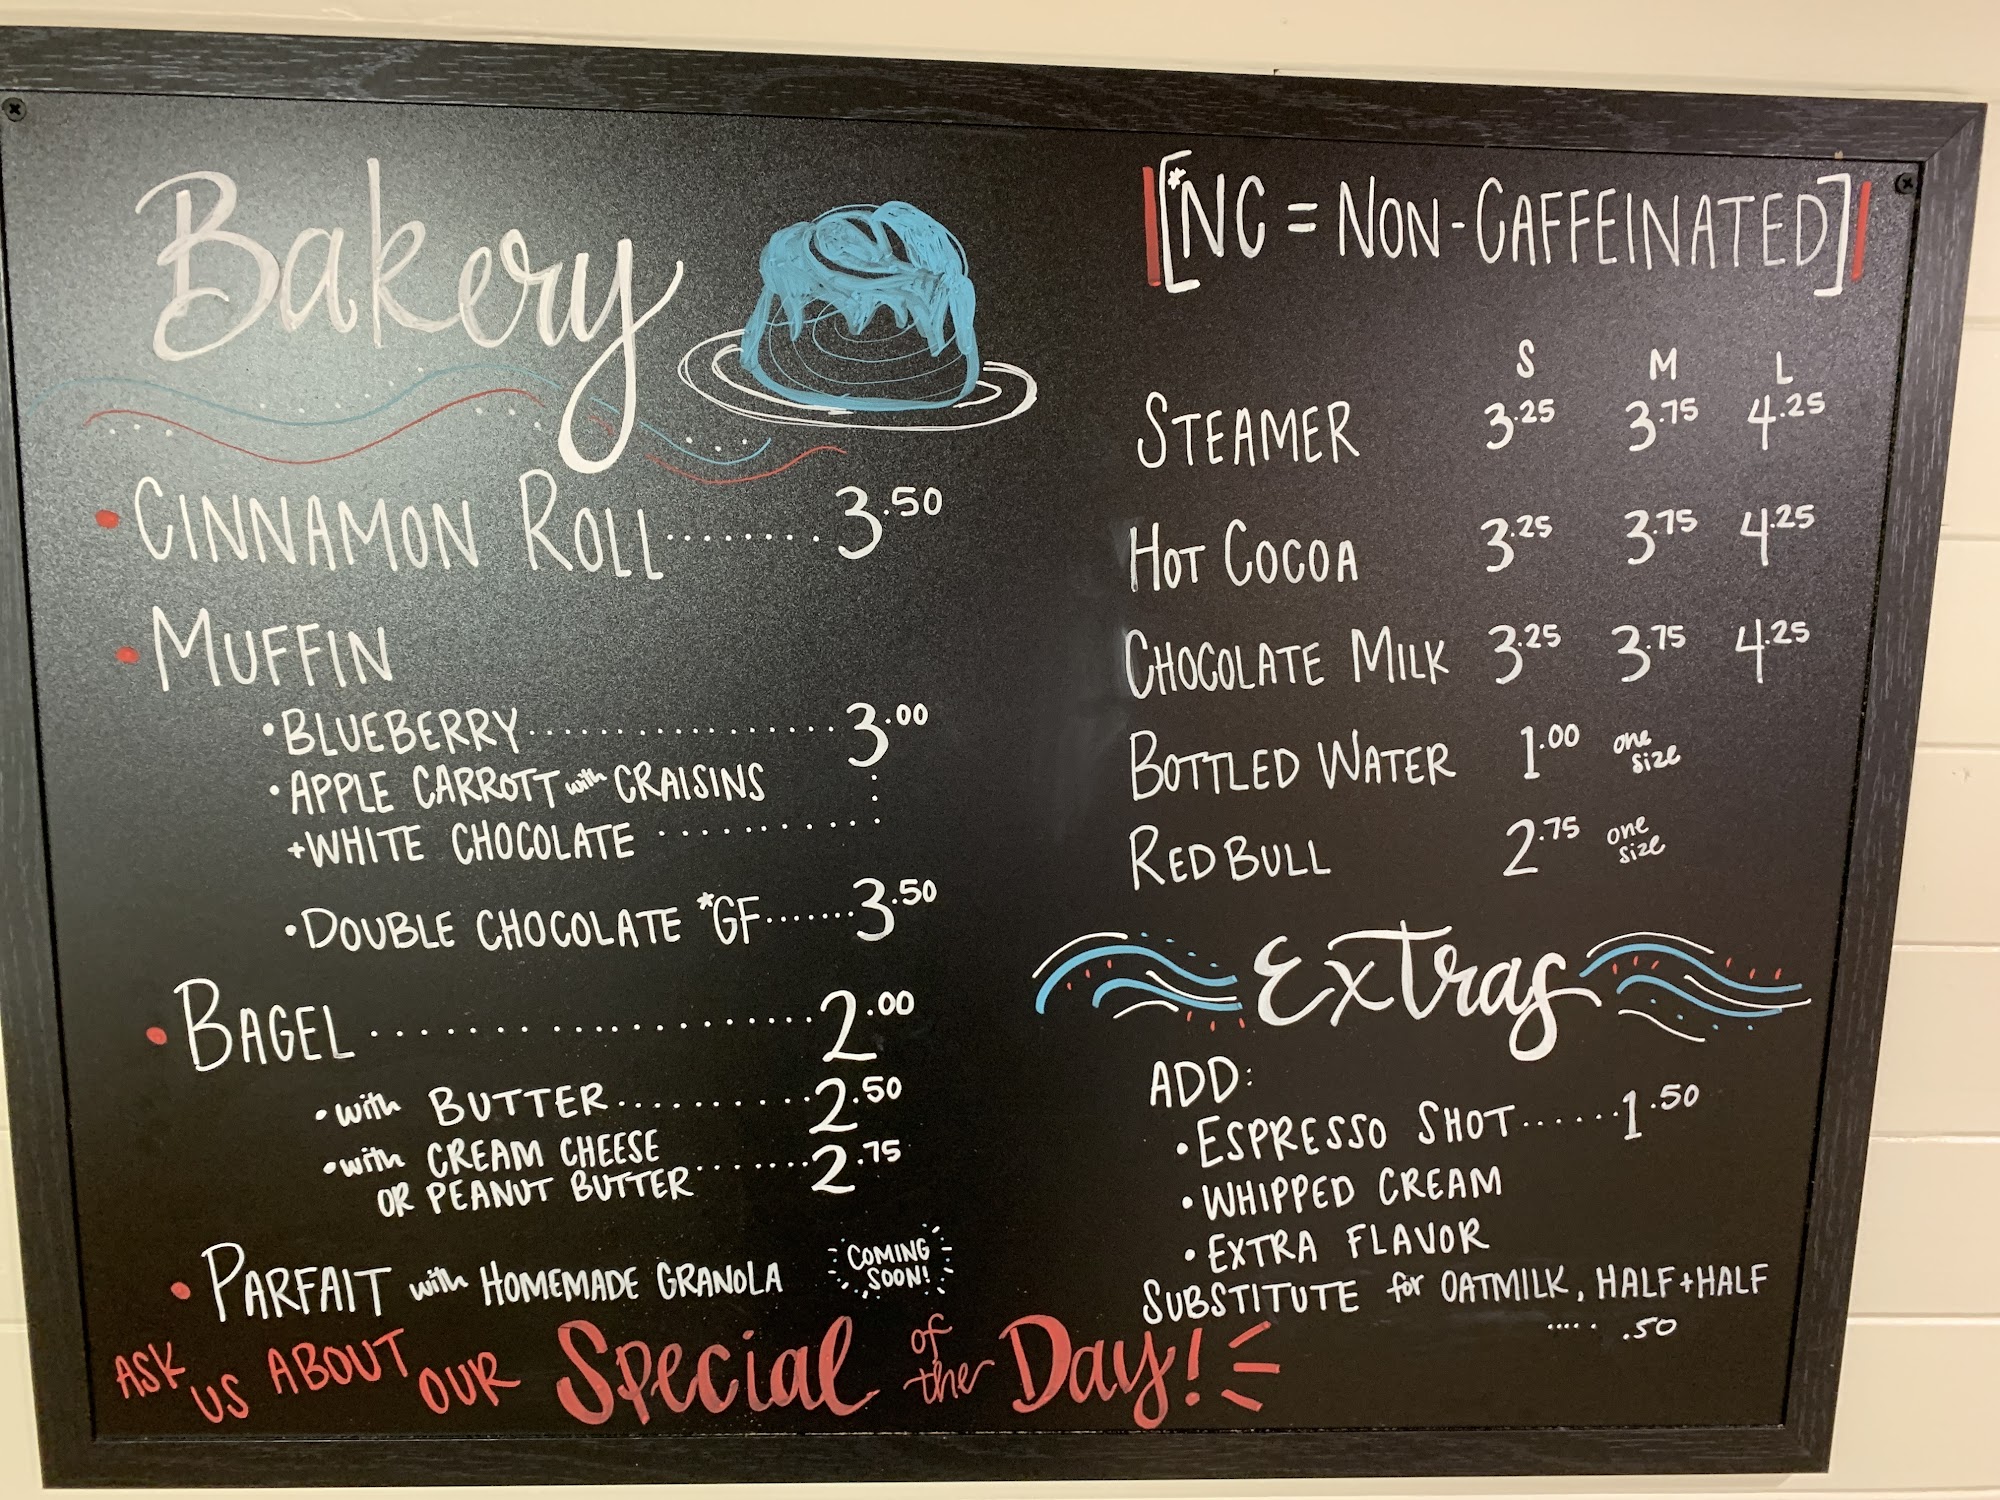 Bakery
• CINNAMON ROLL ........ 3.50
• MUFFIN
• BLUEBERRY .................. 3.00
• APPLE CARROTT with CRAISINS
+ WHITE CHOCOLATE ..........
• DOUBLE CHOCOLATE *GF ....... 3.50
• BAGEL ...................... 2.00
• with BUTTER ........... 2.50
• with CREAM CHEESE
OR PEANUT BUTTER ....... 2.75
• PARFAIT with HOMEMADE GRANOLA
COMING
SOON!
[*NC = NON-CAFFEINATED]
S M L
STEAMER 3.25 3.75 4.25
HOT COCOA 3.25 3.75 4.25
CHOCOLATE MILK 3.25 3.75 4.25
BOTTLED WATER 1.00 one size
RED BULL 2.75 one size
Extras
ADD:
• ESPRESSO SHOT ...... 1.50
• WHIPPED CREAM
• EXTRA FLAVOR
SUBSTITUTE for OATMILK, HALF+HALF
..... .50
ASK US ABOUT OUR Special of the Day!